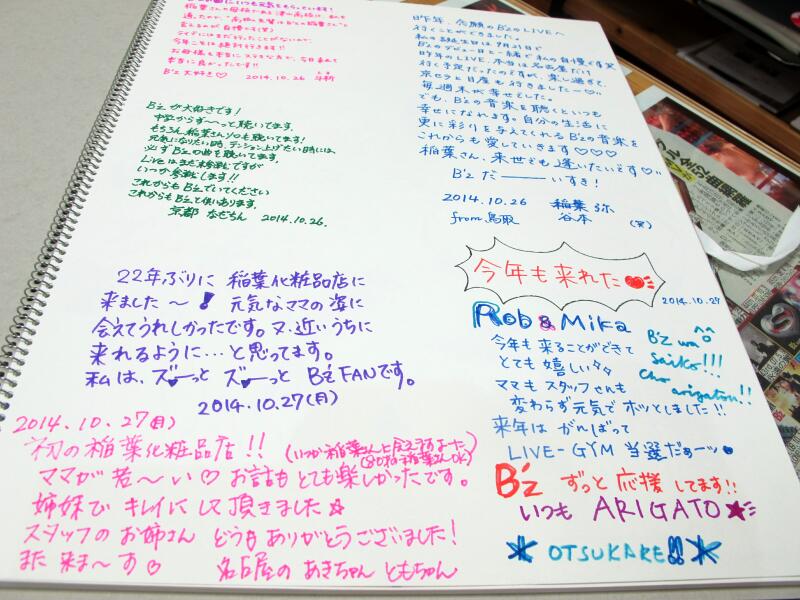 B'z 大好き♡ 2014.10.26
B'zが大好きです!
中学からず〜っと聴いてます。
もちろん稲葉さんソロも聴いてます!
元気になりたい時、テンション上げたい時には、
必ずB'zの曲を聴いてます。
Liveはまだ未参戦ですが
いつか参戦します!!
これからもB'zでいてください
これからもB'zと共にあります。
京都 なむちん 2014.10.26.
昨年、念願のB'zのLIVEへ
行くことができました。
私の誕生日は9月21日で
B'zのデビュー日と一緒で私の自慢です(笑)
昨年のLIVE、本当は名古屋だけ
行く予定だったのですが、楽し過ぎて
京セラと日産も行きましたー♡
毎週末が幸せでした。
でも、B'zの音楽を聴くといつも
幸せになれます。自分の生活に
更に彩りを与えてくれるB'zの音楽を
これからも愛していきます♡♡♡
稲葉さん、来世でも逢いたいです♡
B'z だーーーいすき!
2014.10.26
from 鳥取
谷本
(笑)
22年ぶりに 稲葉化粧品店に
来ました〜! 元気なママの姿に
会えてうれしかったです。又、近いうちに
来れるように…と思ってます。
私は、ズーっと ズーっと B'z FANです。
2014.10.27(月)
今年も来れた
2014.10.27
Rob & Mika
今年も来ることができて
とても嬉しい
ママもスタッフさんも
変わらず元気でホッとしました!!
来年は がんばって
LIVE-GYM 当選だぁーッ
B'z wa
saiko!!!
Cho arigatou!!
B'z ずっと応援してます!!
いつも ARIGATO★
* OTSUKARE!! *
2014.10.27(月)
初の稲葉化粧品店!! (いつか稲葉さんと会えますように)
ママが若〜い♡ お話もとても楽しかったです。
姉妹で キレイにして頂きました☆
スタッフのお姉さん どうもありがとうございました!
また 来ま〜す♡ 名古屋の あきちゃん ともちゃん